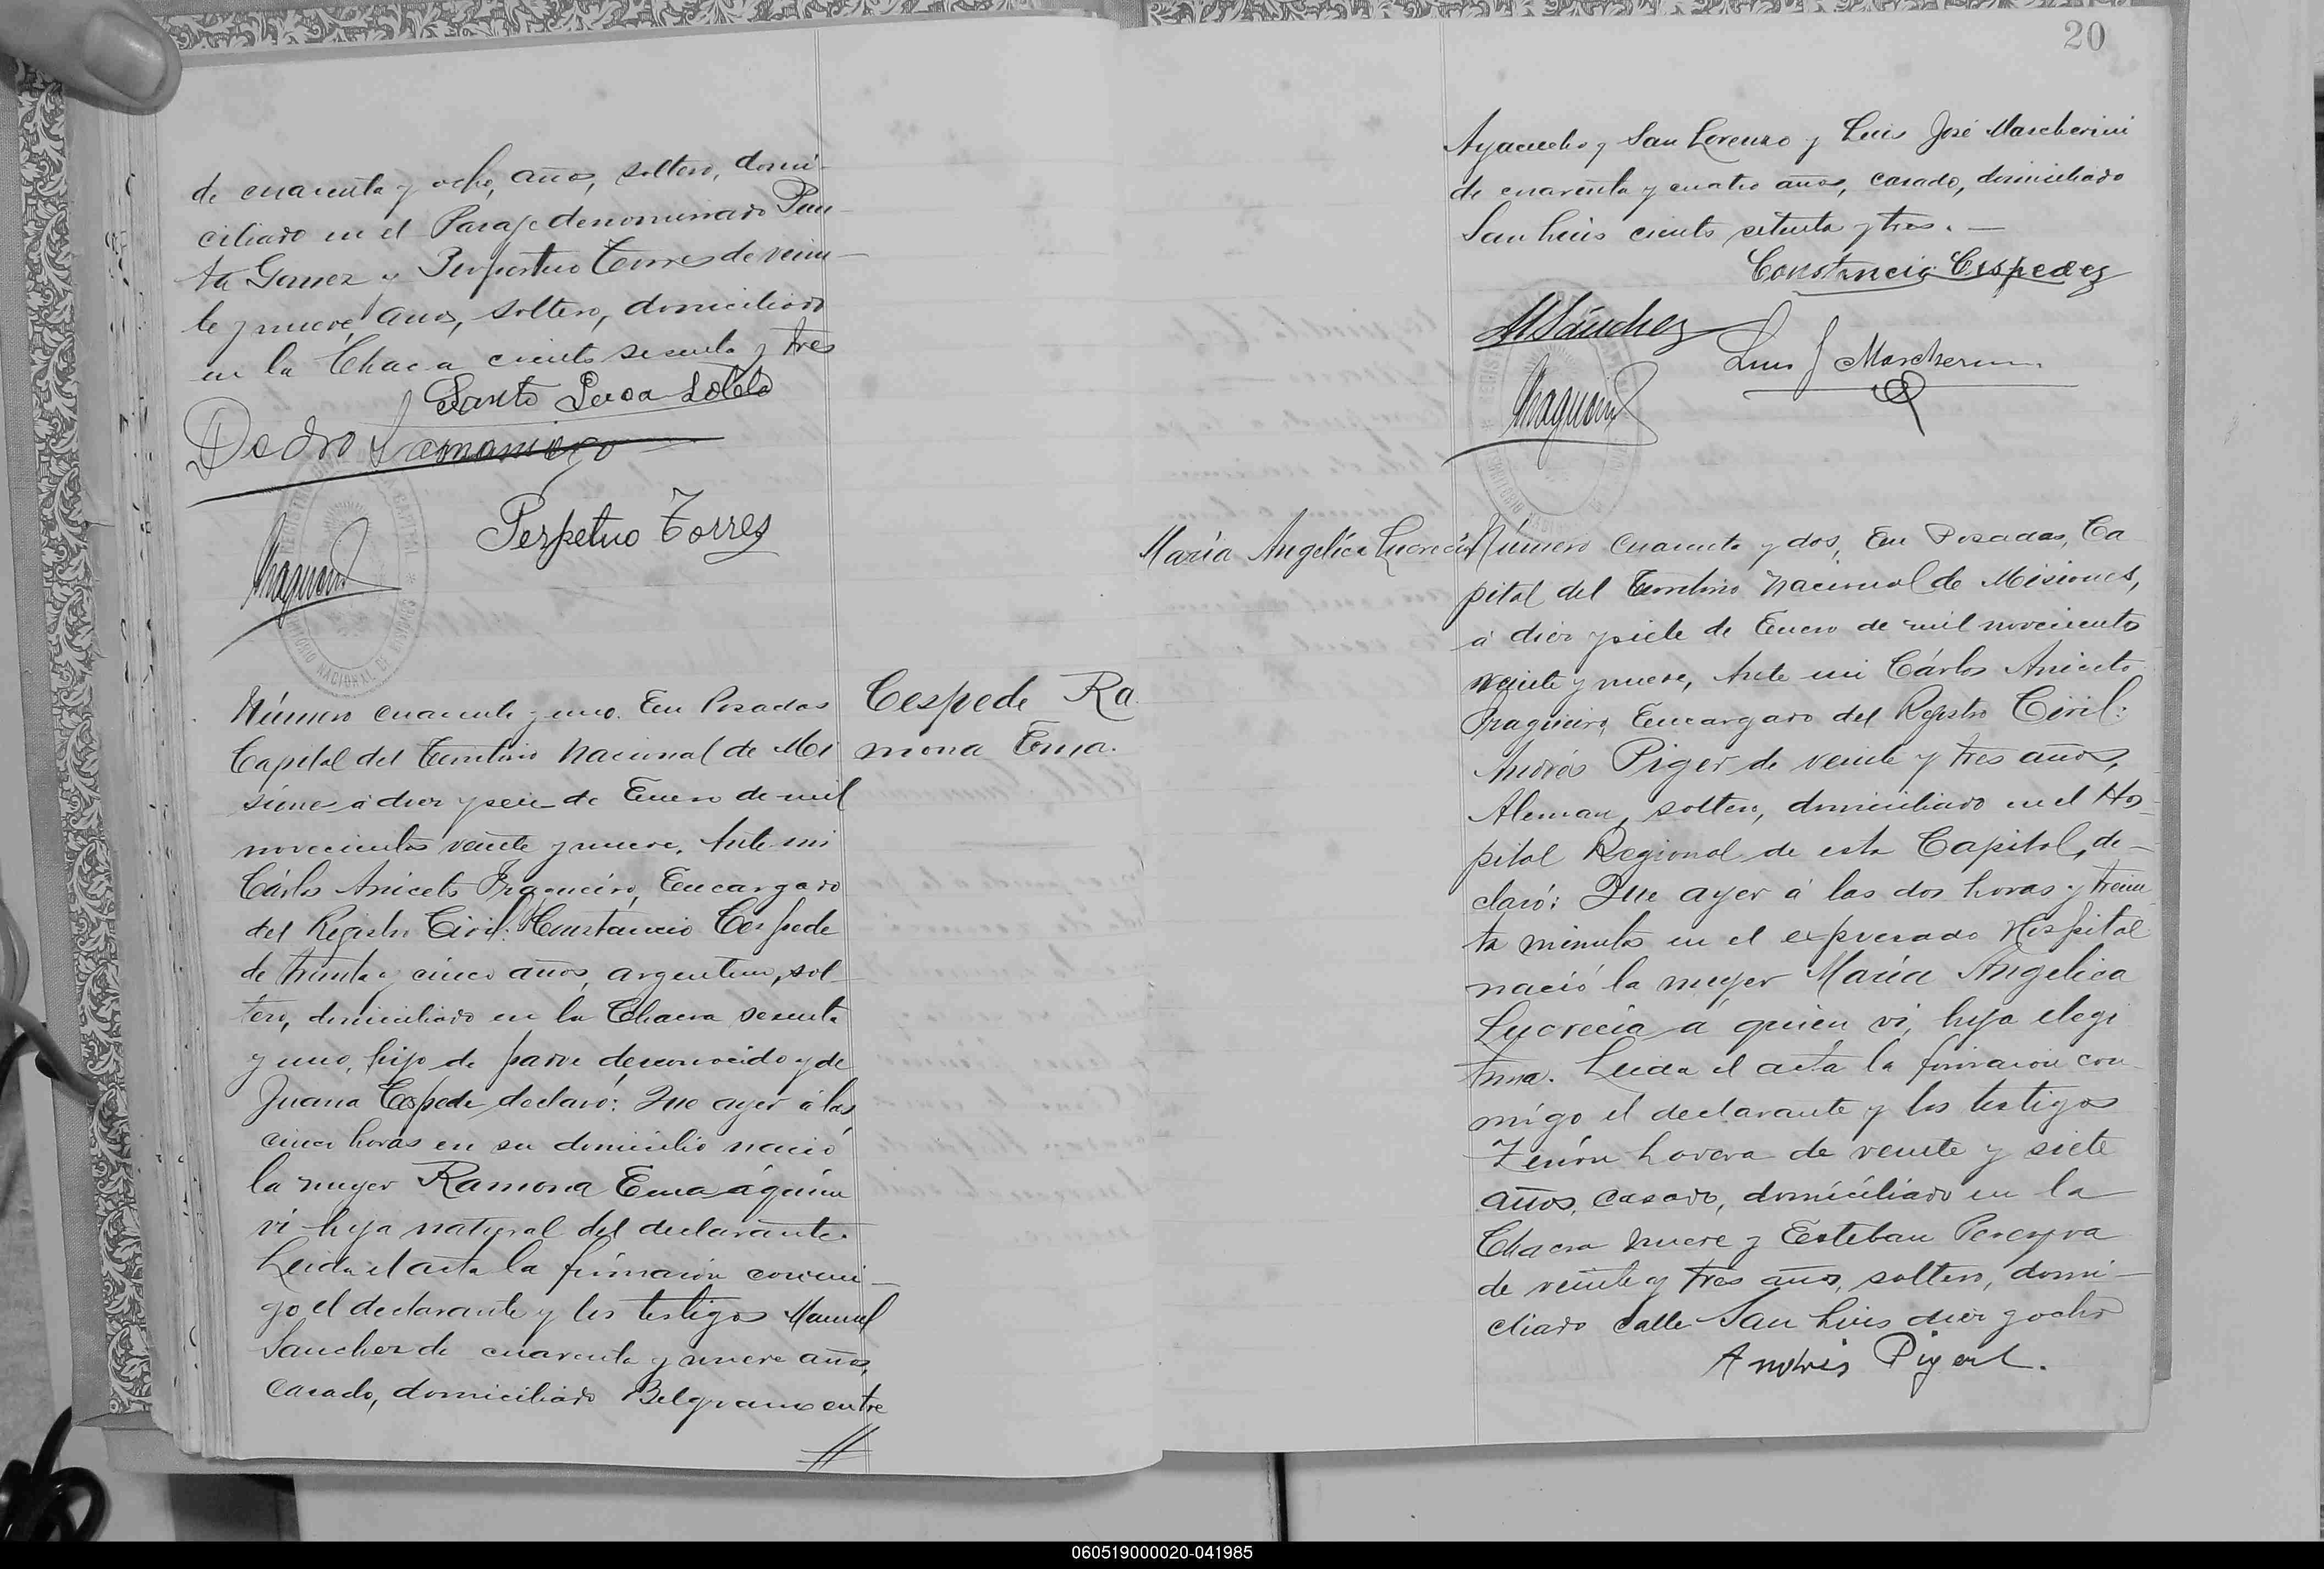 de cuarenta y ocho, años, soltero, domi-
ciliado en el Paraje denominado Pun-
ta Gomez y Perpetuo Torres de vein-
te y nueve años, soltero, domiciliado
en la Chaca ciento sesenta y tres
Santo
Pedro Samaniego
Perpetuo Torres
Número cuarenta y uno. En Posadas
Capital del Territorio Nacional de Mi
siones á diez y seis de Enero de mil
novecientos veinte y nueve. Ante mi
Cárlos Aniceto Fragueiro, Encargado
del Registro Civil: Constancio Cespede
de treinta y cinco años, argentino, sol-
tero, domiciliado en la Chacra sesenta
y uno, hijo de padre desconocido y de
Juana Cespede declaró: Que ayer á las
cinco horas en su domicilio nació
la mujer Ramona Ema á quien
vi hija natural del declarante.
Leida el acta la firmaron conmi-
go el declarante y los testigos Manuel
Sanchez de cuarenta y nueve años,
casado, domiciliado Belgrano entre
//
Cespede Ra
mona Ema.
20
Ayacucho y San Lorenzo y Luis José Mascherini
de cuarenta y cuatro años, casado, domiciliado
San Luis ciento setenta y tres. —
Constancio Cespedez
MSánchez
Luis J Mascherini
María Angélica Lucrecia
Número cuarenta y dos, En Posadas, Ca
pital del Territorio Nacional de Misiones,
á diez y siete de Enero de mil novecientos
veinte y nueve, Ante mi Cárlos Aniceto
Fragueiro, Encargado del Registro Civil:
Andrés Piger de veinte y tres años,
Aleman, soltero, domiciliado en el Hos-
pital Regional de esta Capital, de-
claró: Que ayer á las dos horas y trein-
ta minutos en el expresado Hospital
nació la mujer María Angelica
Lucrecia á quien vi, hija elegi
tima. Leida el acta la firmaron con-
migo el declarante y los testigos
Zenón Lovera de veinte y siete
años, casado, domiciliado en la
Chacra nueve y Esteban Pereyra
de veinte y tres años, soltero, domi-
ciliado calle San Luis diez y ocho
Andrés Pigerl.
060519000020-041985